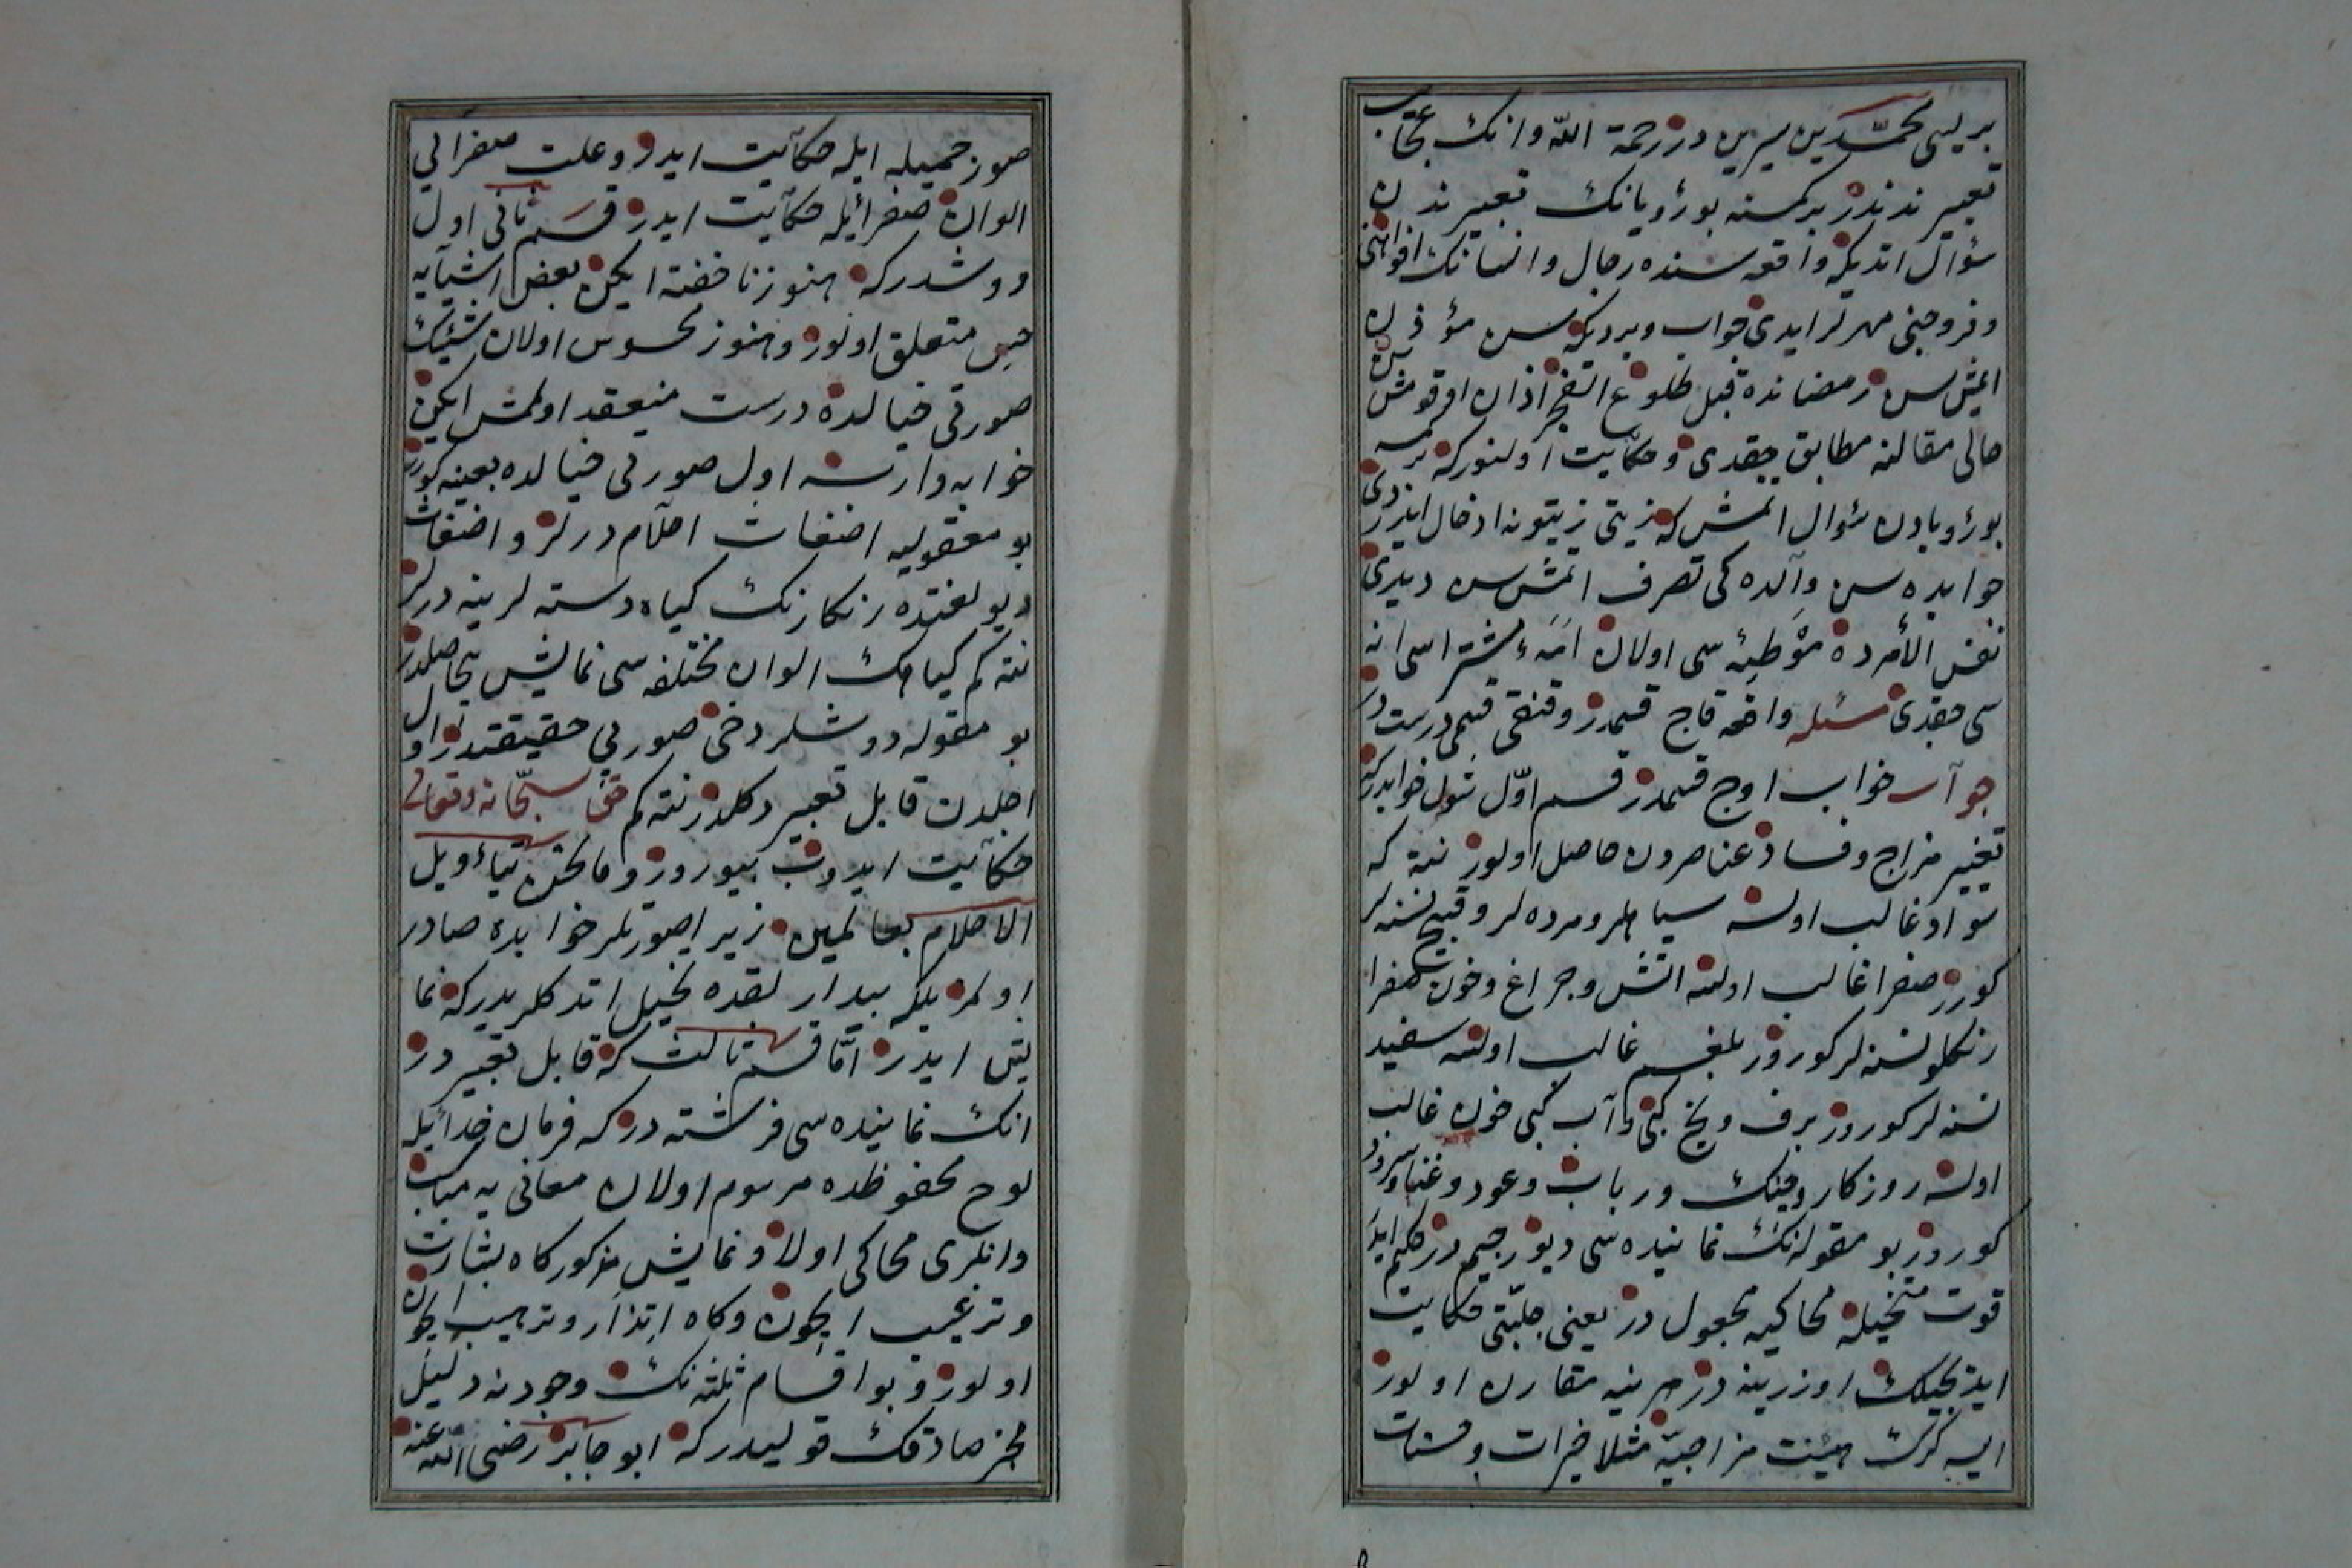 بریسی محمّد بن سیرین در رحمة اللّه وانك عجائب
تعبیرندندر بر كمسنه بو رؤیانك تعبیرندن
سؤال اتدیكه واقعه سنده رجال وانسانك افواهنی
وفروجنی مهرلر ایدی جواب ویردیكه سن مؤذن
ایمش سن رمضانده قبل طلوع الفجر اذان اوقومش سن
حالی مقالنه مطابق چقدی وحكایت اولنوركه بر كمسه
بورؤیادن سؤال اتمش كه زیتی زیتونه ادخال ایدردی
جوابده سن والده كی تصرف اتمش سن دیدی
نفس الأمرده مؤطیئه سی اولان امَه مشتراسی انه
سی چقدی مسئله واقعه قاچ قسمدر وقنغی قسمی درست در
جواب خواب اوچ قسمدر قسم اوّل شول خوابدركه
تغییر مزاج وفساد عناصردن حاصل اولور نته كه
سواد غالب اولسه سیاهلر ومرده لر وقبیح نسنه لر
كورر صفرا غالب اولسه اتش وچراغ وخون صفرا
رنكلو نسنه لر كورور بلغم غالب اولسه سفید
نسنه لر كورور برف ویخ كبی وآب كبی خون غالب
اولسه روزكار وچنك ورباب وعود وغنا وسرود
كورور بو مقوله نك نماینده سی دیو رجیم در حكیم ایله
قوت متخیله محاكیه مجعول در یعنی جبلّتی حكایت
ایدیجیلك اوزرینه در هر نیه مقارن اولور
ایسه كرك هیئت مزاجیّه مثلا خیرات وحسنات
صور جمیله ایله حكایت ایدر وعلت صفرایی
الوان صفرائیله حكایت ایدر قسم ثانی اول
دوشدركه هنوز ناخفته ایكن بعض اشیایه
حس متعلق اولور وهنوز محسوس اولان شیئك
صورتی خیالده درست منعقد اولمش ایكن
خوابه وارسه اول صورتی خیالده بعینه كورر
بو معقولیه اضغاث احلام درلر و اضغاث
دیو لغتده رنكارنك كیاه دسته لرینه درلر
نته كم كیاهك الوان مختلفه سی نمایش بیحاصلدر
بو مقوله دوشلر دخی صوربی حقیقتدر اول
اجلدن قابل تعبیر دكلدر نته كم حق سبحانه وتعالی
حكایت ایدوب بیورور وما نحن بتأویل
الاحلام بعالمین زیرا صورتلر خوابده صادر
اولمز بلكه بیدار لقده تخیل اتدكلریدركه نما
یش ایدر امّا قسم ثالث كه قابل تعبیر در
انك نماینده سی فرشته در كه فرمان خدائیله
لوح محفوظده مرسوم اولان معانی یه مناسب
وانلری محاكی اولا ونمایش مذكور كاه بشارت
وترغیب ایچون وكاه انذار وترهیب ایچون
اولور وبو اقسام ثلثه نك وجودنه دلیل
مخبر صادقك قولیدركه ابو جابر رضی اللّه عنه